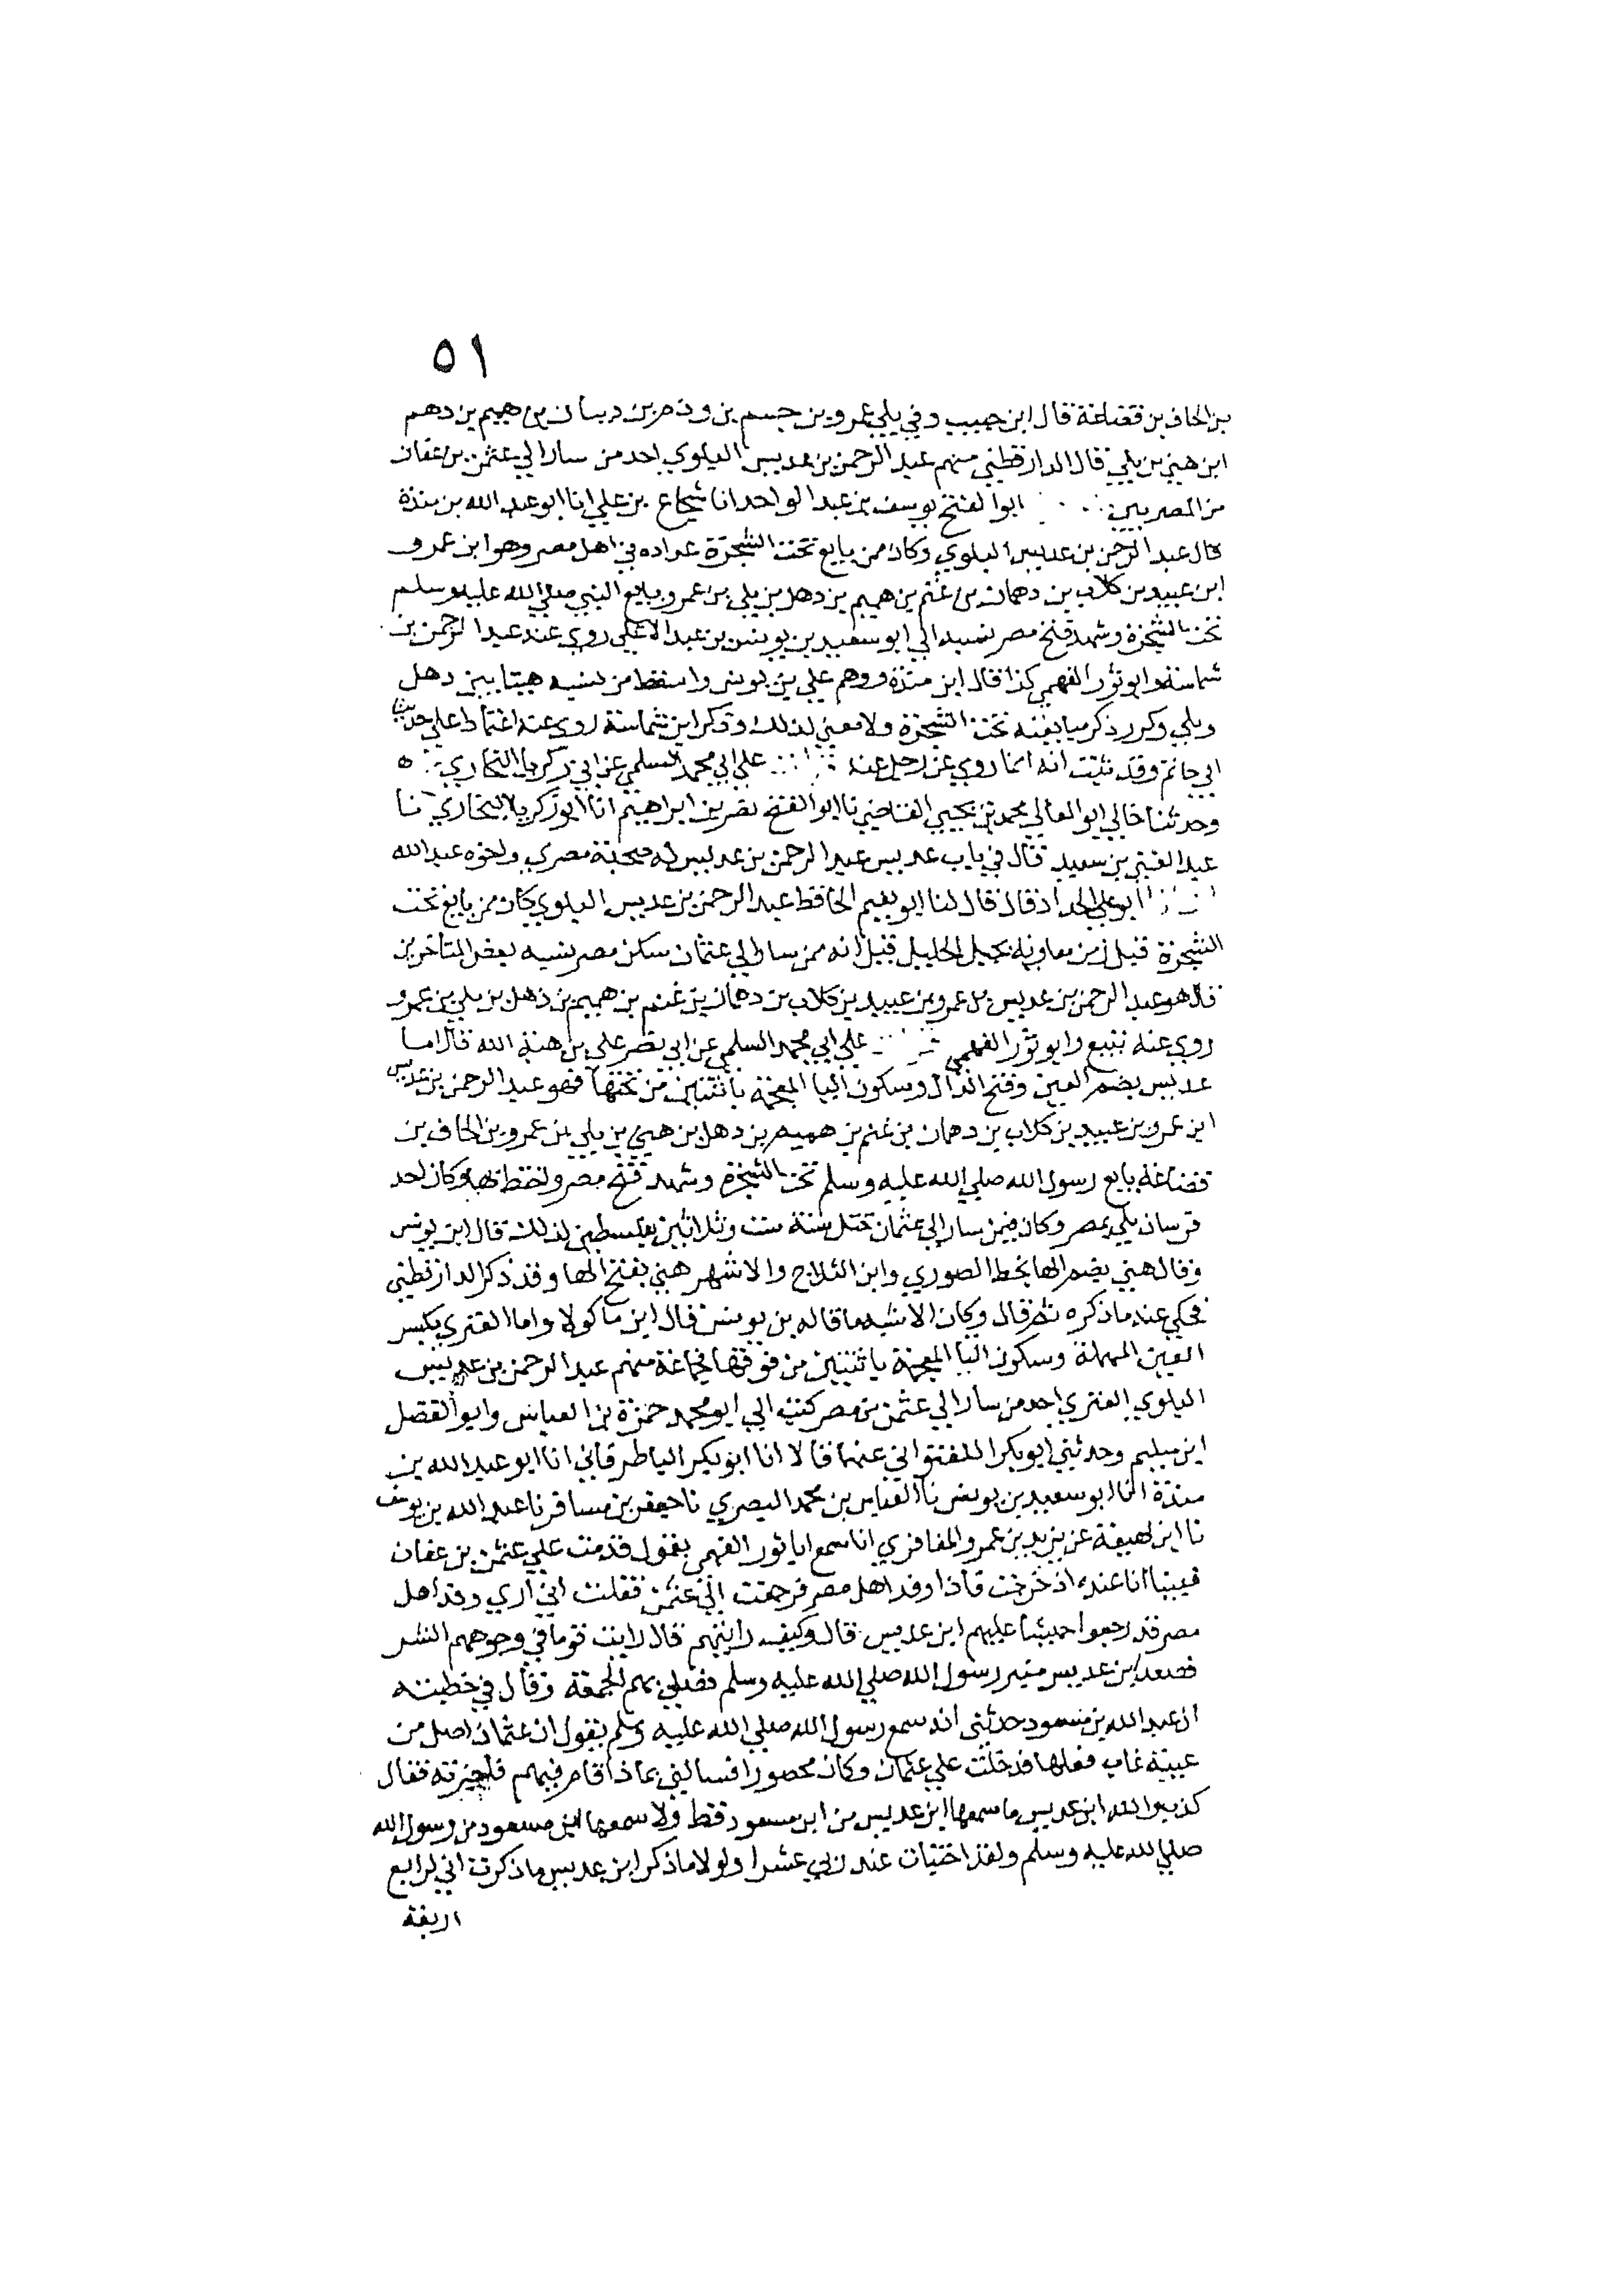 ٥١
بن الحاف بن قضاعة قال ابن حبيب وفي بلي عمرو بن جسم بن ودم بن دبيان بن هميم بن دهم
ابن هني بن بلي قال الدارقطني منهم عبد الرحمن بن عديس البلوي احد من سار الي عثمن بن عفان
من المصريين ابو الفتح يوسف بن عبد الواحد انا شجاع بن علي انا ابو عبد الله بن مندة
قال عبد الرحمن بن عديس البلوي وكان ممن بايع تحت الشجرة عداده في اهل مصر وهو ابن عمرو
ابن عبيد بن كلاب بن دهمان بن غنم بن هميم بن دهل بن بلي بن عمرو بايع النبي صلي الله عليه وسلم
تحت الشجرة وشهد فتح مصر نسبه الي ابو سعيد بن يونس بن عبد الاعلي روي عنه عبد الرحمن بن
شماسة وابو ثور الفهمي كذا قال ابن مندة ووهم علي بن يونس واسقط من نسبه هينا بين دهل
وبلي وكرر ذكر مبايعته تحت الشجرة ولا معني لذلك وذكر ابن شماسة روي عنه اعتماد علي حديث
ابي حاتم وقد بينت انه انما روي عن رجل عنه علي ابي محمد السلمي عن ابي زكريا البخاري ه
وحدثنا خالي ابو المعالي محمد بن يحيي القاضي نا ابو الفتح نصر بن ابراهيم انا ابو زكريا البخاري نا
عبد الغني بن سعيد قال في باب عديس عبد الرحمن بن عديس له صحبة مصري واخوه عبد الله
ابو علي الحداد قال قال لنا ابو نعيم الحافظ عبد الرحمن بن عديس البلوي كان ممن بايع تحت
الشجرة قتل زمن معاوية بجبل الجليل قيل انه ممن سار الي عثمان سكن مصر نسبه بعض المتاخرين
قال هو عبد الرحمن بن عديس بن عمرو بن عبيد بن كلاب بن دهمان بن غنم بن هميم بن ذهل بن بلي بن عمرو
روي عنه تبيع وابو ثور الفهمي علي ابي محمد السلمي عن ابي نصر علي بن هبة الله قال اما
عديس بضم العين وفتح الدال وسكون اليا المعجمة باثنتين من تحتها فهو عبد الرحمن بن عديس
ابن عمرو بن عبيد بن كلاب بن دهمان بن غنم بن هميم بن دهل بن هني بن بلي بن عمرو بن الحاف بن
قضاعة بايع رسول الله صلي الله عليه وسلم تحت الشجرة وشهد فتح مصر واختط بها وكان احد
فرسان بلي بمصر وكان فيمن سار الي عثمان قتل سنة ست وثلاثين بفلسطين لذلك قال ابن يونس
وقال هني بضم الها بخط الصوري وابن الثلاج والاشهر هني بفتح الها وقد ذكر الدارقطني
فحكي عنه ما ذكره ثم قال وكان الاشبه ما قاله بن يونس قال ابن ماكولا واما العتري بكسر
العين المهملة وسكون التا المعجمة باثنتين من فوقها فجماعة منهم عبد الرحمن بن عديس
البلوي العتري احد من سار الي عثمن من مصر كتب الي ابو محمد حمزة بن العباس وابو الفضل
ابن سليم وحدثني ابو بكر اللفتواني عنهما قالا انا ابو بكر الباطرقاني انا ابو عبد الله بن
مندة انا ابو سعيد بن يونس نا العباس بن محمد البصري نا جعفر بن مسافر نا عبد الله بن يوسف
نا ابن لهيعة عن يزيد بن عمرو المعافري انا سمع ابا ثور الفهمي يقول قدمت علي عثمن بن عفان
فبينا انا عنده اذ خرجت فاذا وفد اهل مصر فرجعت الي عثمن فقلت اني اري وفد اهل
مصر قد رجعوا جيشا عليهم ابن عديس قال وكيف رايتهم قال رايت قوما في وجوههم الشر
فصعد ابن عديس منبر رسول الله صلي الله عليه وسلم فصلي بهم الجمعة وقال في خطبته
ان عبد الله بن مسعود حدثني انه سمع رسول الله صلي الله عليه وسلم يقول ان عثمان اضل من
عيبة غاب فعلها فدخلت علي عثمان وكان محصورا فسالني بماذا قام فيهم فاخبرته فقال
كذب والله ابن عديس ما سمعها ابن عديس من ابن مسعود قط ولا سمعها ابن مسعود من رسول الله
صلي الله عليه وسلم ولقد اختبات عند ربي عشرا ولولا ما ذكر ابن عديس ما ذكرت اني لرابع
اربعة